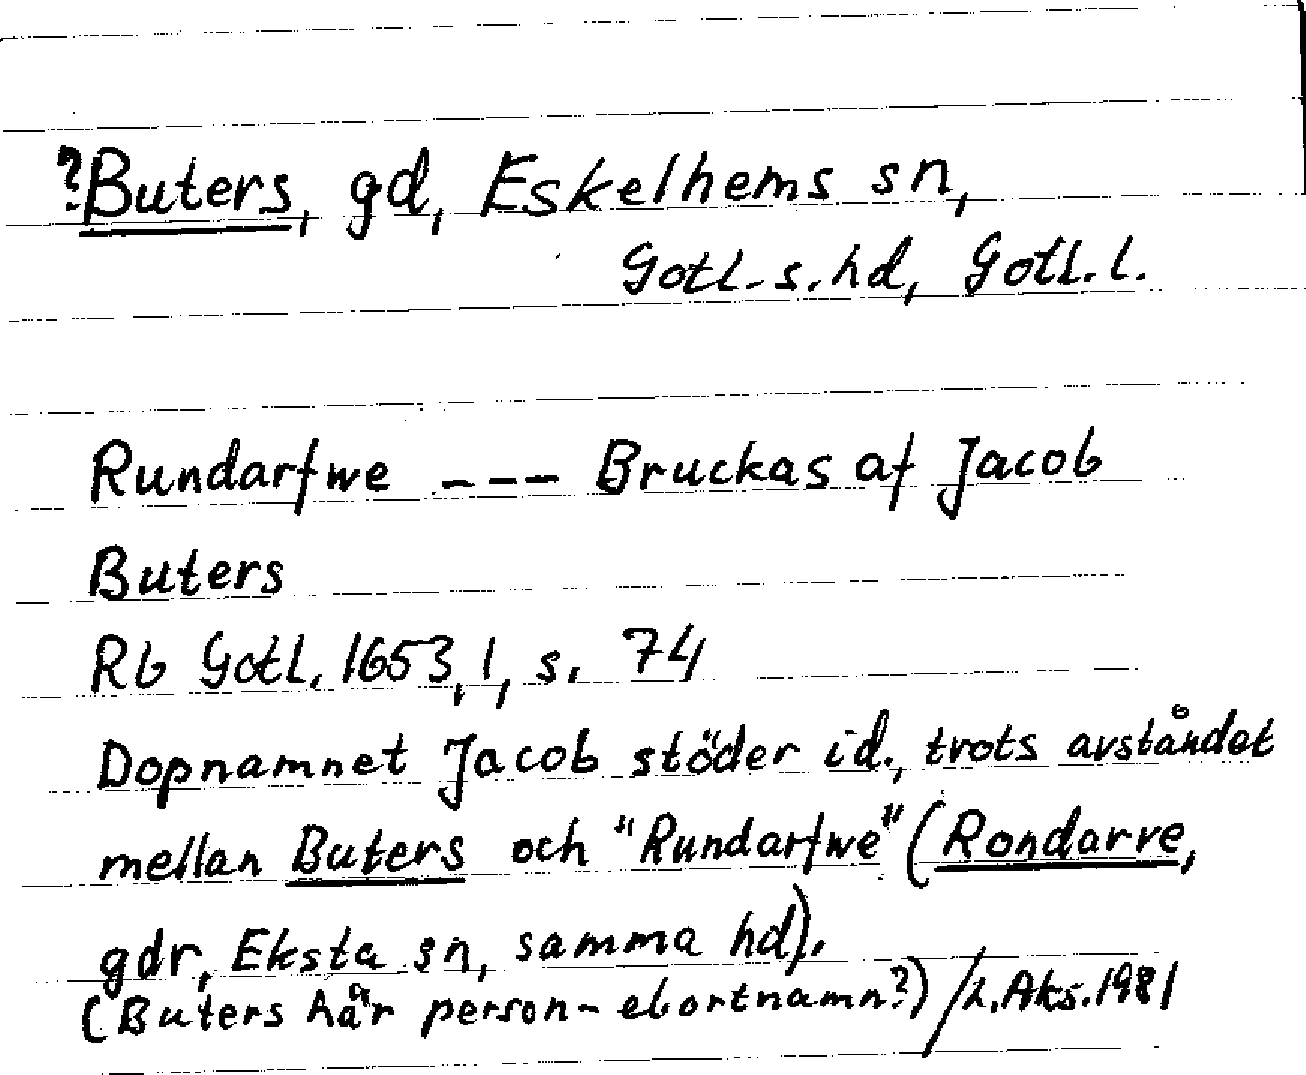 ?Buters, gd, Eskelhems sn,
Gotl. s. hd, Gotl. l.
Rundarfwe ---- Bruckas af Jacob
Buters
Rb Gotl. 1653, 1, s. 74
Dopnamnet Jacob stöder id., trots avståndet
mellan Buters och "Rundarfwe" (Rondarve,
gdr, Eksta sn, samma hd).
(Buters här person- ebortnamn?) / L. Aks. 1981